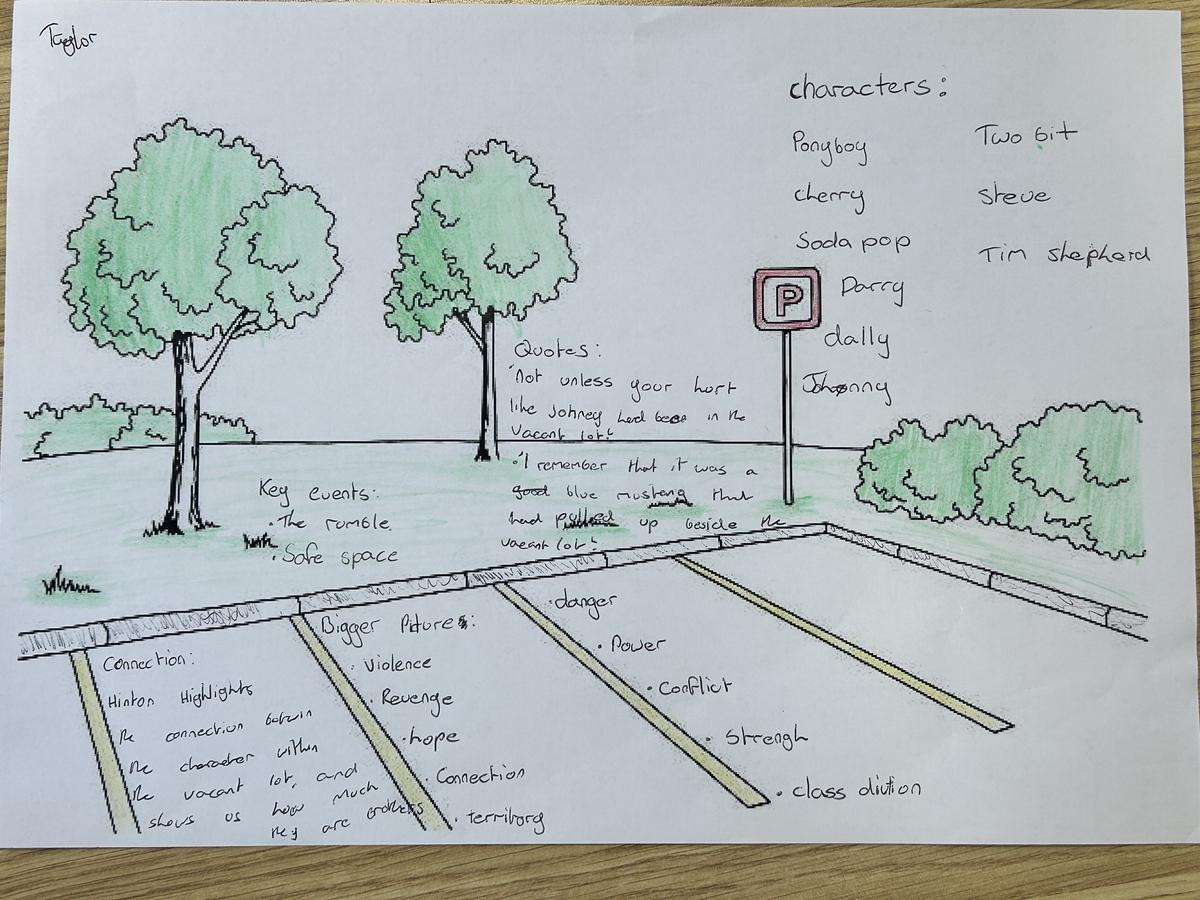 Taylor
characters:
Ponyboy
cherry
Soda pop
Darry
dally
Johnny
Two bit
Steve
Tim shepherd
P
Quotes:
"Not unless your hurt
like Johney had been in the
vacant lot"
• "I remember that it was a
blue mustang that
had pulled up beside the
vacant lot"
Key events:
• The rumble
• Safe space
Connection:
Hinton Highlights
the connection betwin
the character within
the vacant lot, and
shows us how much
they are brothers
Bigger Picture:
• Violence
• Revenge
• hope
• Connection
• territory
• danger
• Power
• Conflict
• Strengh
• class divtion